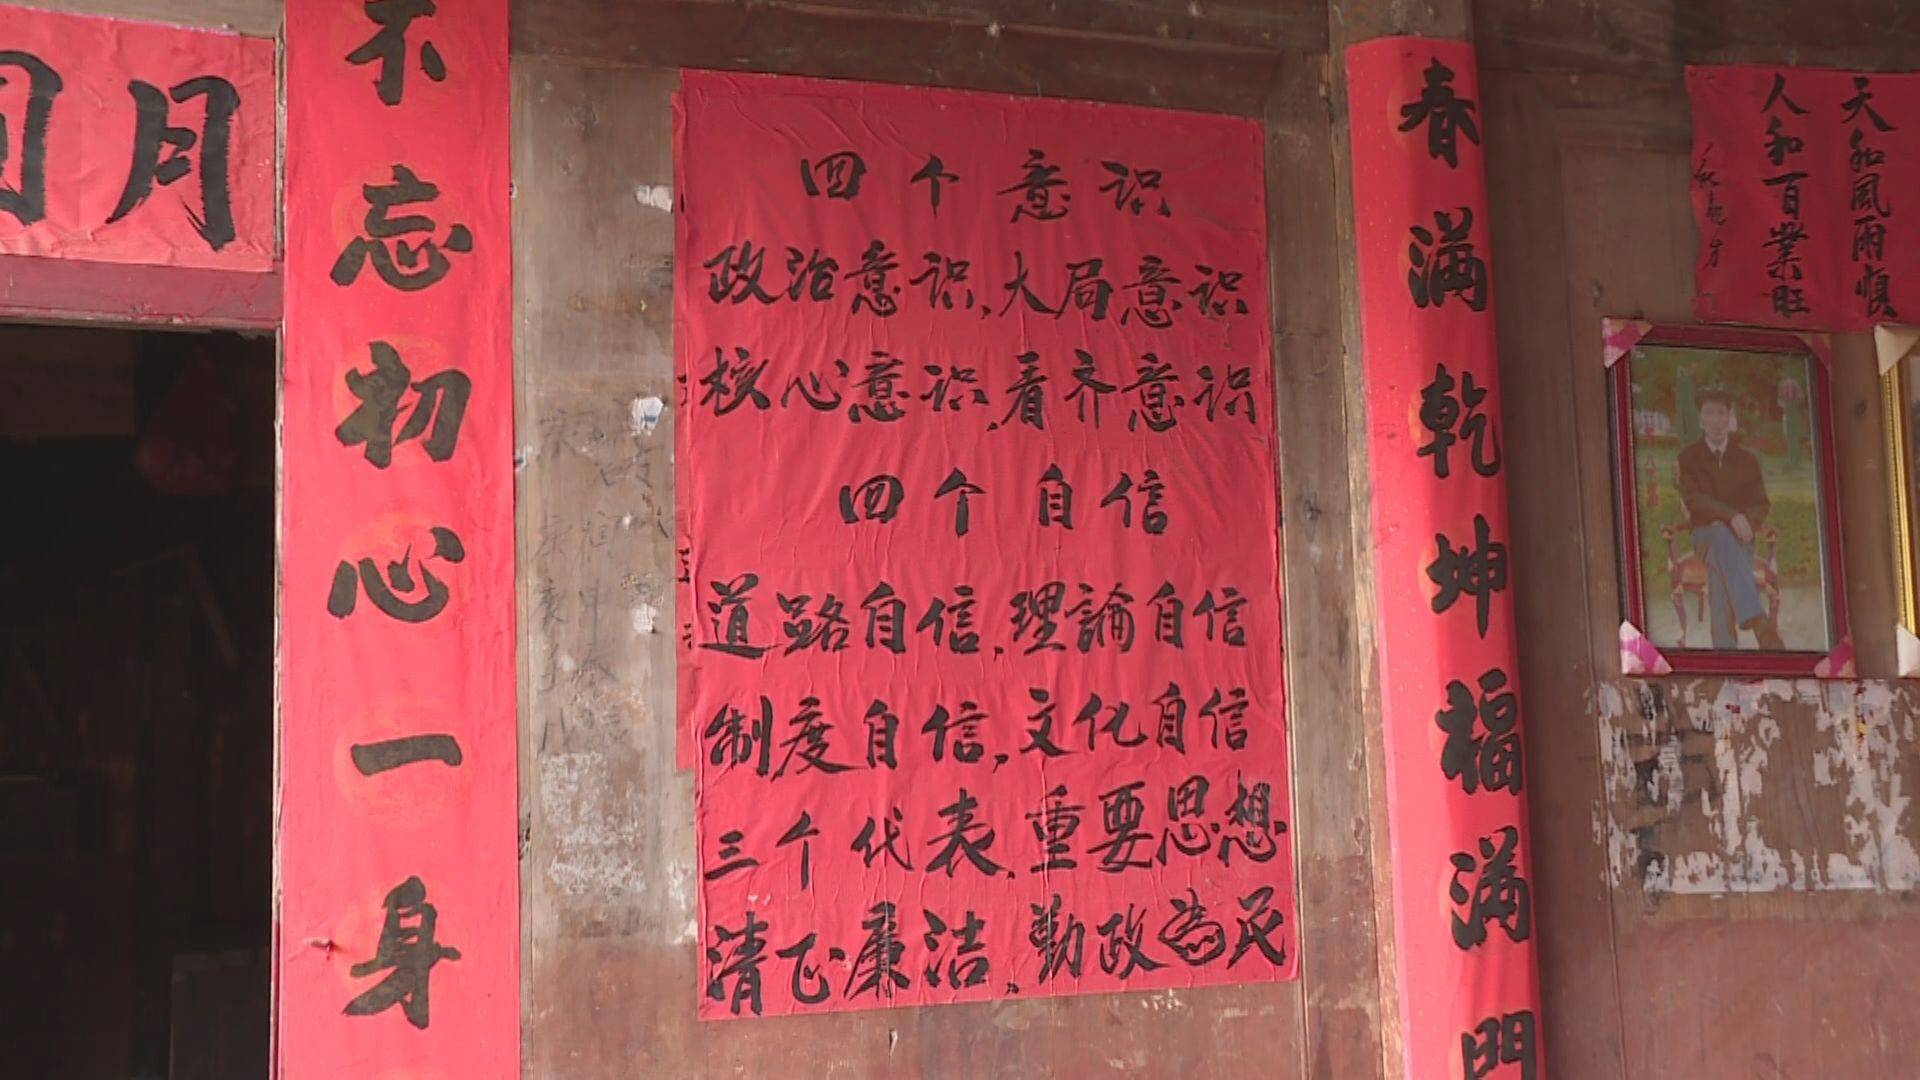 月
不忘初心一身
四个意识
政治意识,大局意识
核心意识,看齐意识
四个自信
道路自信,理論自信
制度自信,文化自信
三个代表,重要思想
清正廉洁,勤政为民
春满乾坤福满門
天和風雨順
人和百業旺